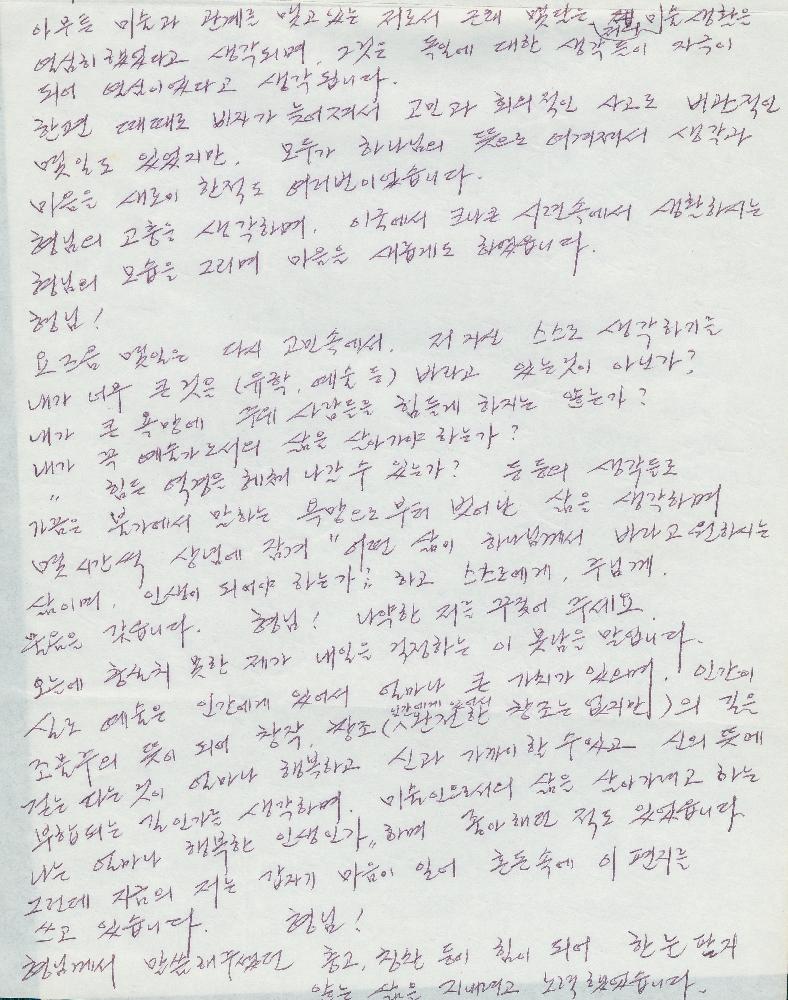 아무튼 미술과 관계를 맺고 있는 저로서 근래 몇달은 미술생활은
열심히 했었다고 생각되며, 그것은 독일에 대한 생각들이 자극이
되어 열심이었다고 생각됩니다.
한편 때때로 비자가 늦어져서 고민과 회의적인 사고로 비관적인
몇일도 있었지만, 모두가 하나님의 뜻으로 여겨져서 생각과
마음을 새로이 한적도 여러번이었습니다.
형님의 고충을 생각하며, 이국에서 크나큰 시련속에서 생활하시는
형님의 모습을 그리며 마음을 새롭게도 하였읍니다.
형님!
요즈음 몇일은 다시 고민속에서, 저 자신 스스로 생각하기를
내가 너무 큰것을 (유학, 예술 등) 바라고 있는것이 아닌가?
내가 큰 욕망에 주위 사람들을 힘들게 하지는 않는가?
내가 꼭 예술가로서의 삶을 살아가야 하는가?
" 힘든 역경을 헤쳐 나갈 수 있는가? 등등의 생각들로
가끔은 불가에서 말하는 욕망으로부터 벗어난 삶을 생각하며
몇 시간씩 상념에 잠겨 "어떤 삶이 하나님께서 바라고 원하시는
삶이며, 인생이 되어야 하는가?" 하고 스스로에게, 주님께,
물음을 갖습니다. 형님! 나약한 저를 꾸짖어 주세요.
오늘에 충실치 못한 제가 내일을 걱정하는 이 못남을 말입니다.
실로 예술은 인간에게 있어서 얼마나 큰 가치가 있으며, 인간이
조물주의 뜻이 되어 창작, 창조(인간에게 있어서 완전한 창조는 없지만)의 길을
걷는 다는것이 얼마나 행복하고 신과 가까이 할 수 있고 신의 뜻에
부합되는 길인가를 생각하며, 미술인으로서의 삶을 살아가려고 하는
나는 얼마나 행복한 인생인가" 하며 좋아해던 적도 있었습니다.
그런데 지금의 저는 갑자기 마음이 일어 혼돈속에 이 편지를
쓰고 있습니다. 형님!
형님께서 말씀해주셨던 충고, 칭찬 등이 힘이 되어 한눈 팔지
않는 삶을 지내려고 노력했었습니다.